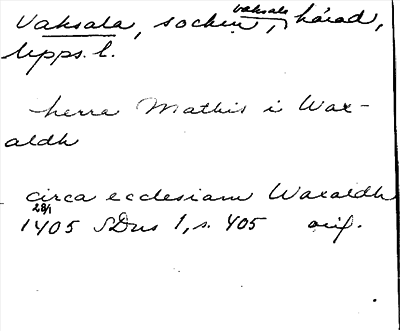 Vaksala, socken, vaksala härad,
Upps. l.
herra Mathis i Wax-
aldh
circa ecclesiam Waxaldh
28/1
1405 SDns 1, s. 405 orig.